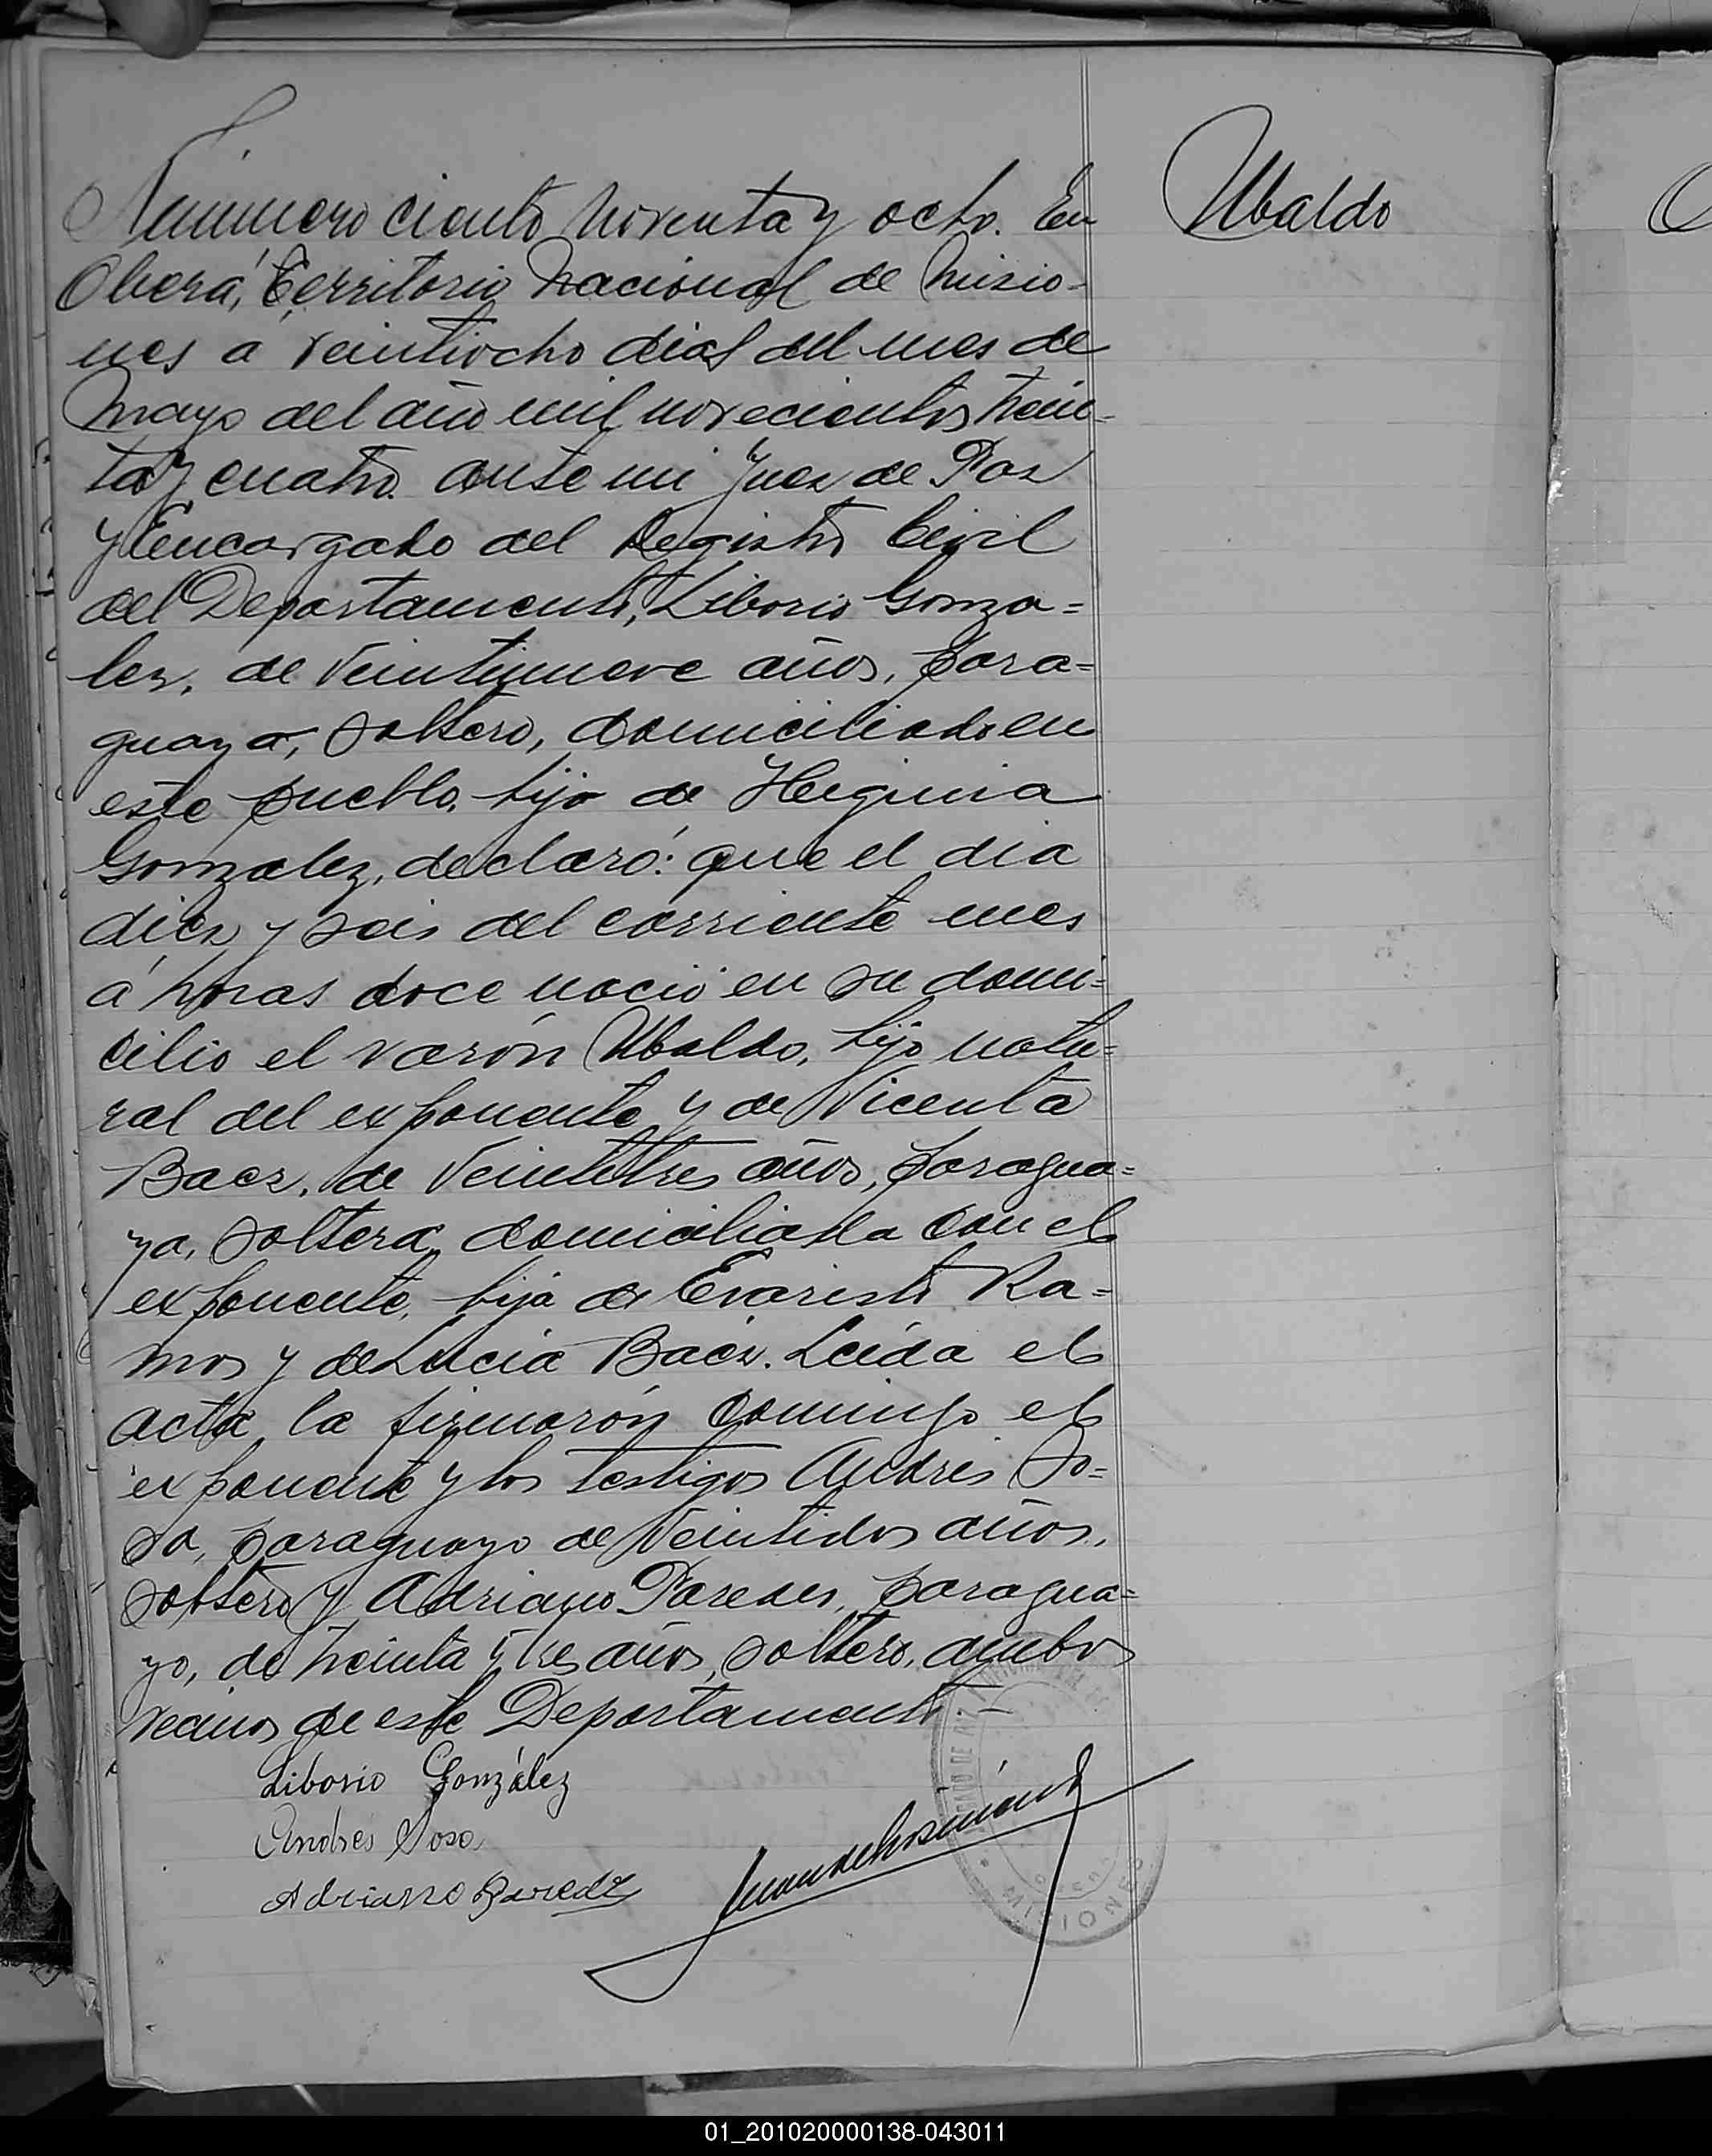 Nummero ciento noventa y ocho. En
Oberá, Territorio Nacional de Misio-
nes a veintiocho dias del mes de
Mayo del año mil novecientos trein-
ta y cuatro ante mi Juez de Paz
y Encargado del Registro Civil
del Departamento, Liborio Gonza=
lez, de veintinueve años, para=
guayo, soltero, domiciliado en
este pueblo, hijo de Higinia
Gonzalez, declaró: que el dia
diez y seis del corriente mes
á horas doce nació en su domi=
cilio el varón Ubaldo, hijo natu=
ral del exponente y de Vicenta
Baez, de veintitres años, paragua=
ya, soltera, domiciliada con el
exponente, hija de Evaristo Ra=
mos y de Lucia Baez. Leida el
acta la firmarón conmigo el
exponente y los testigos Andrés So=
sa, paraguayo de veintidos años,
soltero y Adriano Paredes, paragua=
yo, de treinta y tres años, soltero, ambos
vecinos de este Departamento.-
Liborio González
Andrés Sosa
Adriano Paredez
Ubaldo
MISIONES
01_201020000138-043011